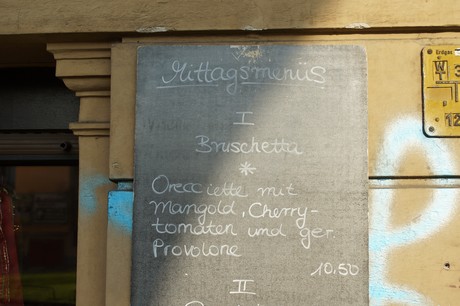 Mittagsmenüs
I
Bruschetta
*
Orecciette mit
Mangold, Cherry-
tomaten und ger.
Provolone
10,50
II
Erdgas
W